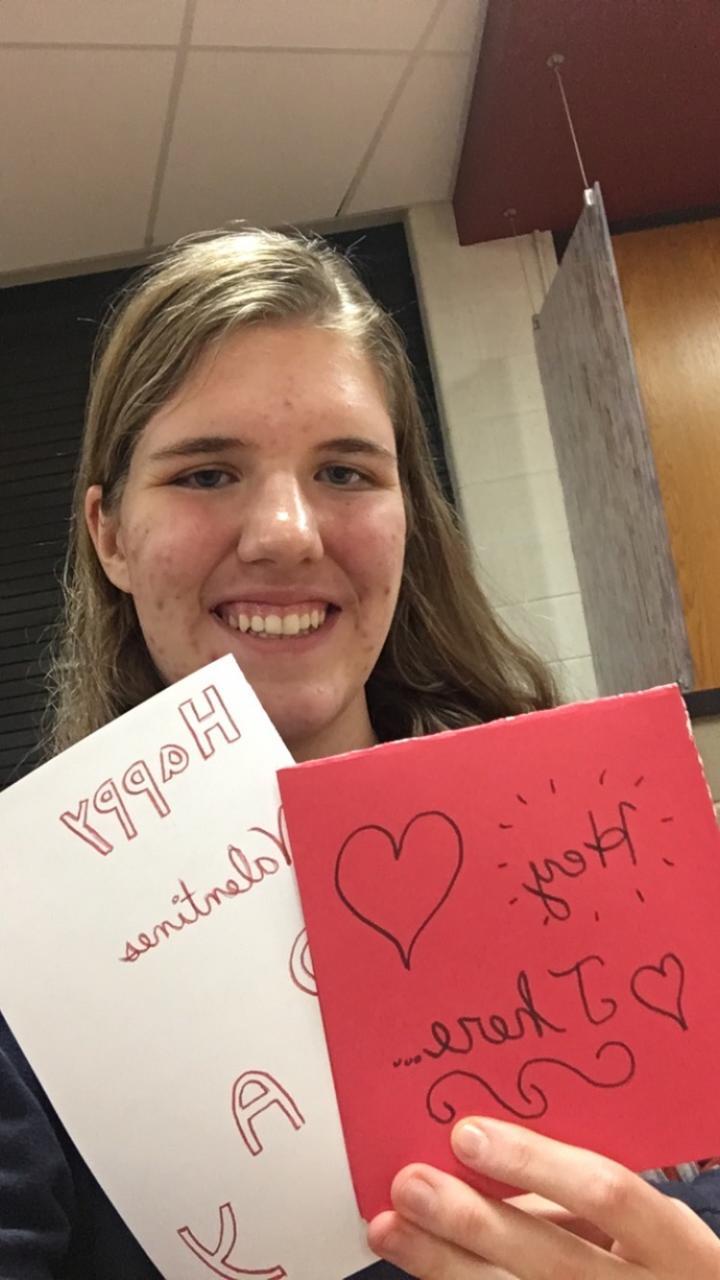 Happy
Valentines
D
A
Y
Hey
There...